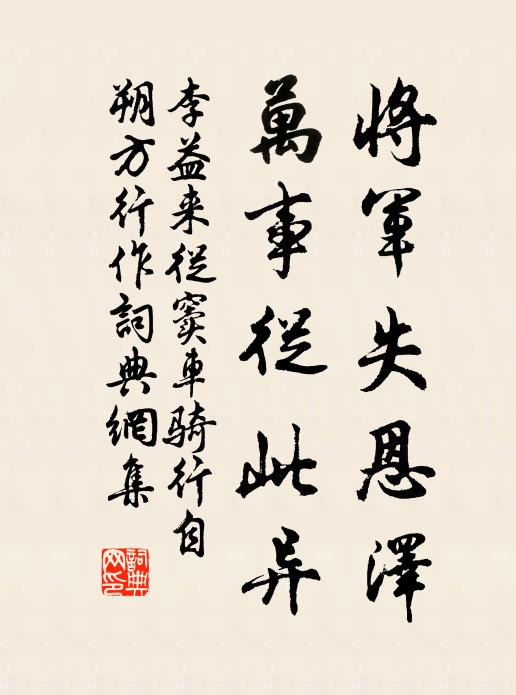 將軍失恩澤
萬事從此异
李益来從竇車騎行自
朔方行作詞典網集
詞典
网印